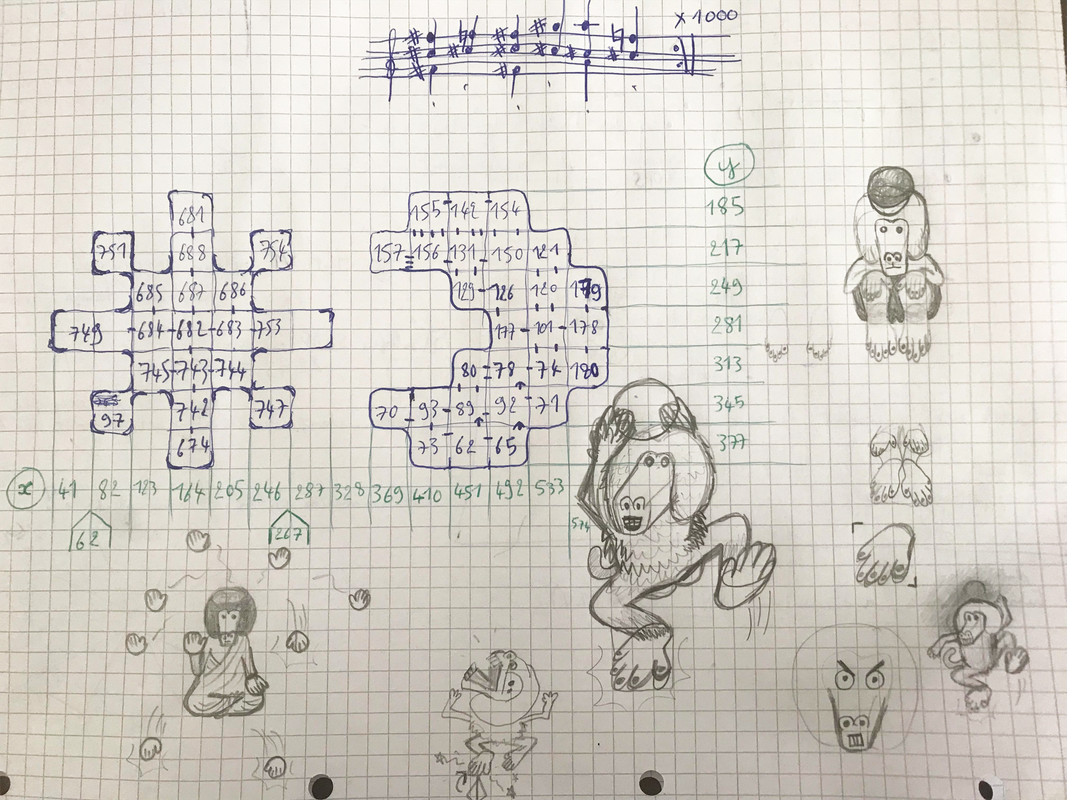 x 1000
y
681 155 142 154 185
751 688 754 157 156 131 150 121 217
685 687 686 129 126 120 179 249
749 684 682 683 753 177 101 178 281
745 743 744 80 78 74 180 313
97 742 747 70 93 89 92 71 345
674 73 62 65 377
x 41 82 123 164 205 246 287 328 369 410 451 492 533
62 267 574